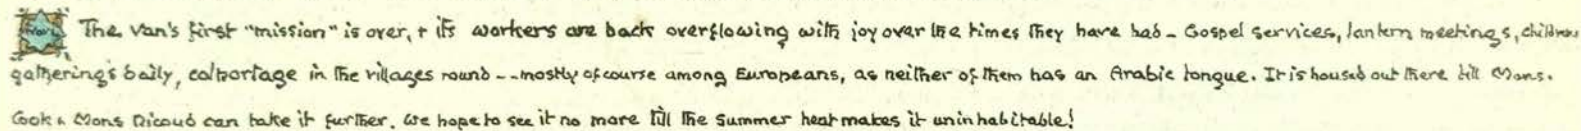 Nov. 1 The Van's first "mission" is over, + its workers are back overflowing with joy over the times they have had - Gospel services, lantern meetings, childrens
gatherings daily, colportage in the villages round -- mostly of course among Europeans, as neither of them has an Arabic tongue. It is housed out there till Mons.
Cook & Mons Nicoud can take it further. We hope to see it no more till the Summer heat makes it uninhabitable!